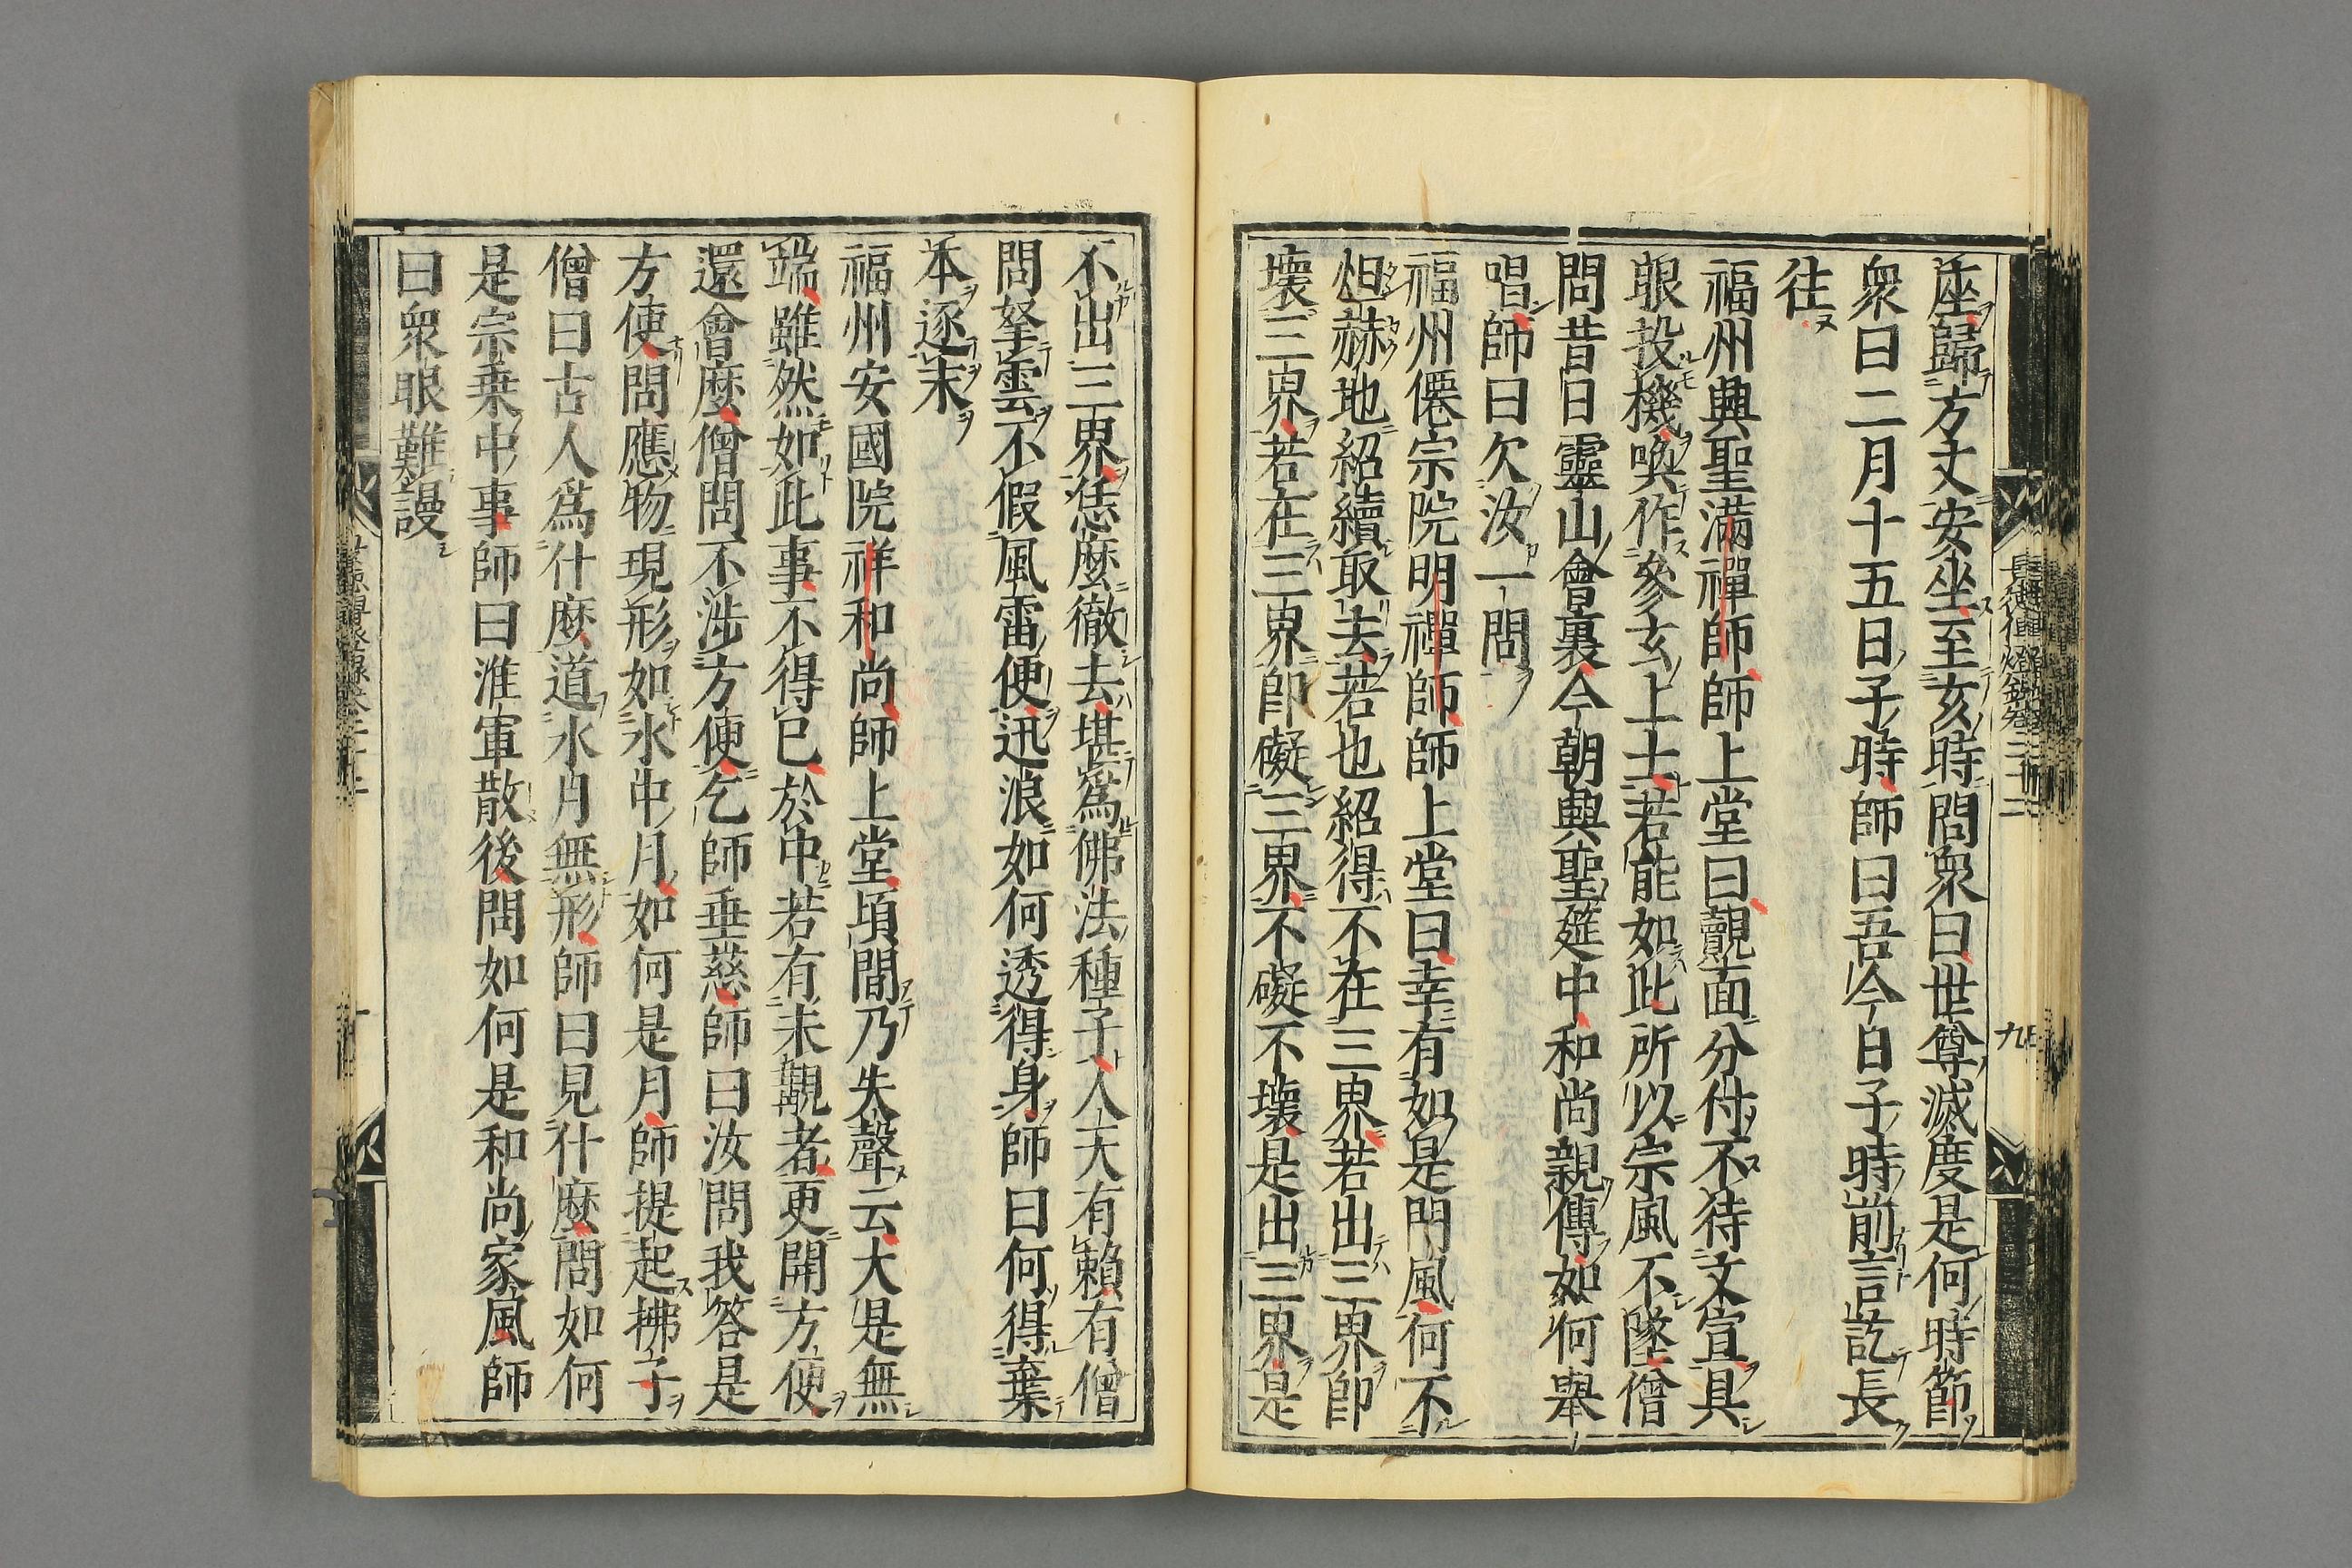 座歸方丈安坐至亥時問衆曰世尊滅度是何時節
衆曰二月十五日子時師曰吾今日子時前言訖長
往
福州興聖滿禪師師上堂曰覿面分付不待文宣具
眼投機喚作參玄上士若能如此所以宗風不墜僧
問昔日靈山會裏今朝興聖筵中和尚親傳如何舉
唱師曰欠汝一問
福州僊宗院明禪師師上堂曰幸有如是門風何不
烜赫地紹續取去若也紹得不在三界若出三界卽
壞三界若在三界卽礙三界不礙不壞是出三界是
不出三界恁麼徹去堪爲佛法種子人天有賴有僧
問拏雲不假風雷便迅浪如何透得身師曰何得棄
本逐末
福州安國院祥和尚師上堂頃間乃失聲云大是無
端雖然如此事不得已於中若有未覯者更開方便
還會麼僧問不涉方便乞師垂慈師曰汝問我答是
方便問應物現形如水中月如何是月師提起拂子
僧曰古人爲什麼道水月無形師曰見什麼問如何
是宗乘中事師曰淮軍散後問如何是和尚家風師
曰衆眼難謾